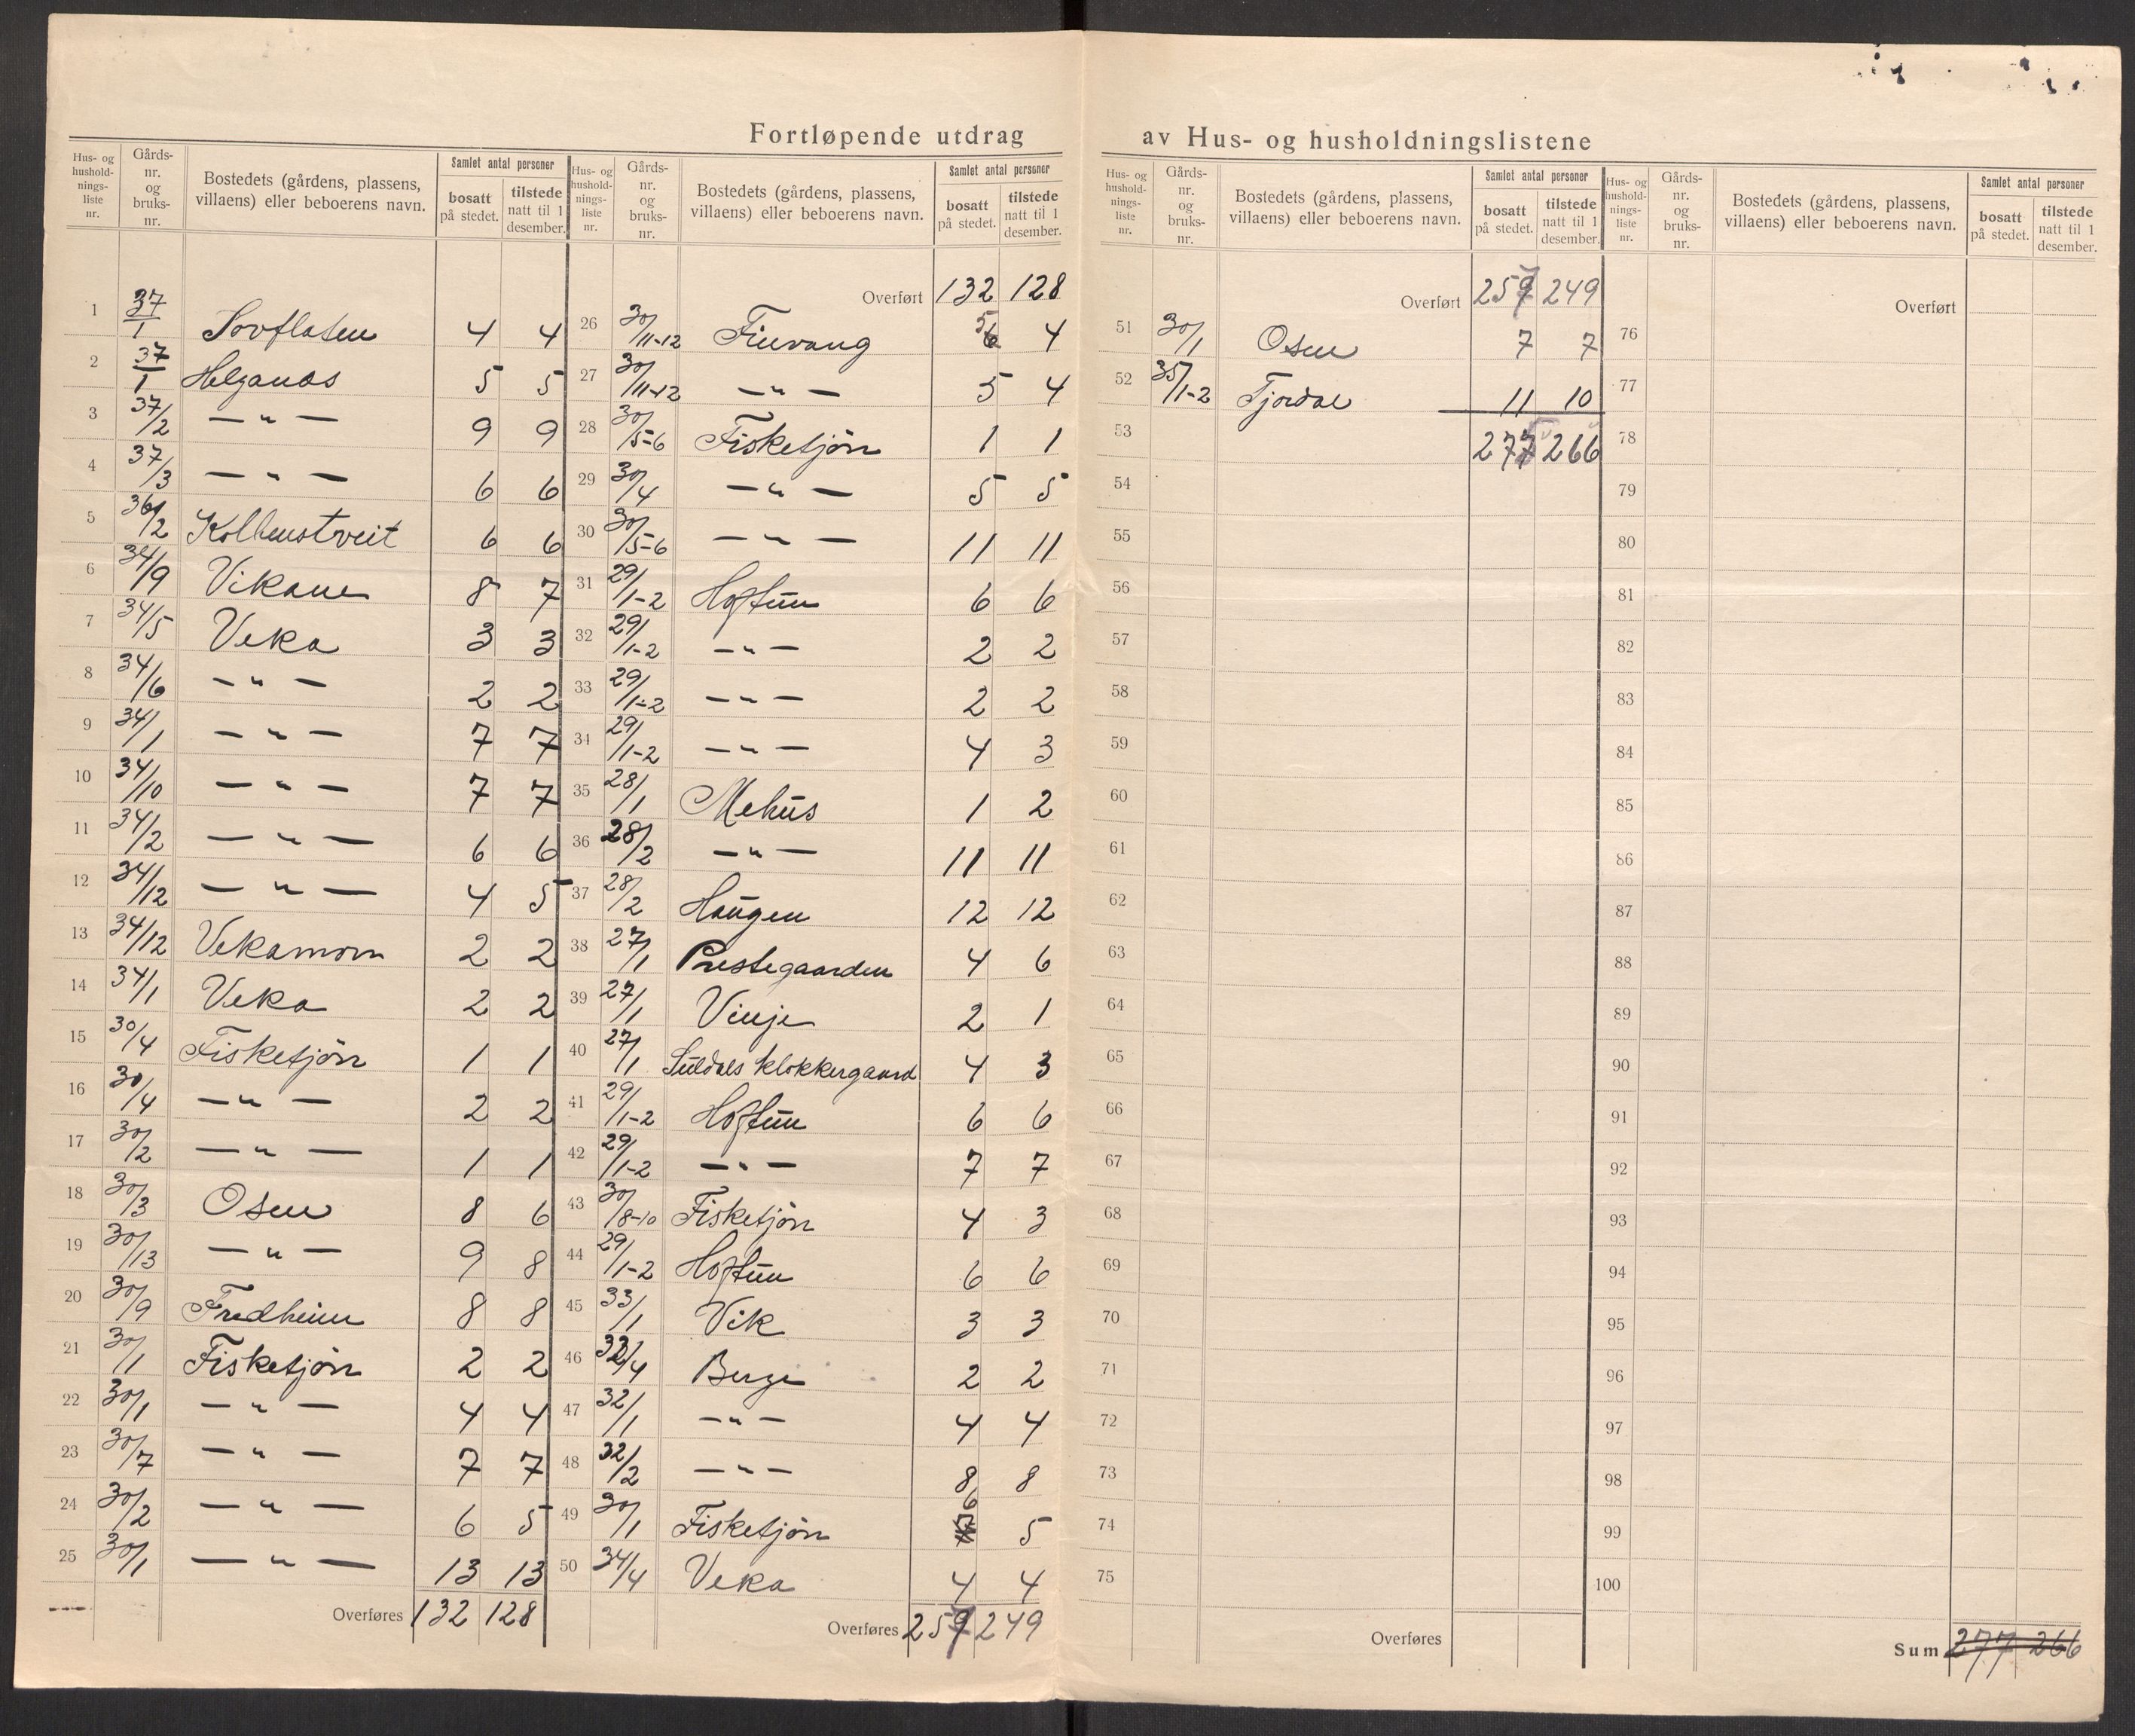 Fortløpende utdrag av Hus- og husholdningslistene
Hus- og hushold-nings-liste nr. | Gårds-nr. og bruks-nr. | Bostedets (gårdens, plassens, villaens) eller beboerens navn. | Samlet antal personer | bosatt på stedet. | tilstede natt til 1 desember.
1 37/1 4 4
2 37/1 Helganes 5 5
3 37/2 — " — 9 9
4 37/3 — " — 6 6
5 36/2 Kolbenstveit 6 6
6 34/9 Vikane 8 7
7 34/5 Veka 3 3
8 34/6 — " — 2 2
9 34/1 — " — 7 7
10 34/10 — " — 7 7
11 34/2 — " — 6 6
12 34/12 — " — 4 5
13 34/12 Vekamoen 2 2
14 34/1 Veka 2 2
15 30/4 Fisketjön 1 1
16 30/4 — " — 2 2
17 30/2 — " — 1 1
18 30/3 Osen 8 6
19 30/13 — " — 9 8
20 30/9 Fredheim 8 8
21 30/1 Fisketjön 2 2
22 30/1 — " — 4 4
23 30/7 — " — 7 7
24 30/2 — " — 6 5
25 30/1 — " — 13 13
Overføres 132 128
Hus- og hushold-nings-liste nr. | Gårds-nr. og bruks-nr. | Bostedets (gårdens, plassens, villaens) eller beboerens navn. | Samlet antal personer | bosatt på stedet. | tilstede natt til 1 desember.
Overført 132 128
26 30/11-12 Finvang 5 4
27 30/11-12 — " — 5 4
28 30/5-6 Fisketjön 1 1
29 30/4 — " — 5 5
30 30/5-6 — " — 11 11
31 29/1-2 Hoftun 6 6
32 29/1-2 — " — 2 2
33 29/1-2 — " — 2 2
34 29/1-2 — " — 4 3
35 28/1 Mehus 1 2
36 28/2 — " — 11 11
37 28/2 Haugen 12 12
38 27/1 Prestegaarden 4 6
39 27/1 Vinje 2 1
40 27/1 Suldals klokkergaard 4 3
41 29/1-2 Hoftun 6 6
42 29/1-2 — " — 7 7
43 30/8-10 Fisketjön 4 3
44 29/1-2 Hoftun 6 6
45 33/1 Vik 3 3
46 32/4 Berge 2 2
47 32/1 — " — 4 4
48 32/2 — " — 8 8
49 30/1 Fisketjön 6 5
50 34/4 Veka 4 4
Overføres 257 249
Hus- og hushold-nings-liste nr. | Gårds-nr. og bruks-nr. | Bostedets (gårdens, plassens, villaens) eller beboerens navn. | Samlet antal personer | bosatt på stedet. | tilstede natt til 1 desember.
Overført 257 249
51 30/1 Osen 7 7
52 35/1-2 Tjordal 11 10
53 277 266
54
55
56
57
58
59
60
61
62
63
64
65
66
67
68
69
70
71
72
73
74
75
Overføres
Hus- og hushold-nings-liste nr. | Gårds-nr. og bruks-nr. | Bostedets (gårdens, plassens, villaens) eller beboerens navn. | Samlet antal personer | bosatt på stedet. | tilstede natt til 1 desember.
Overført
76
77
78
79
80
81
82
83
84
85
86
87
88
89
90
91
92
93
94
95
96
97
98
99
100
Sum 277 266